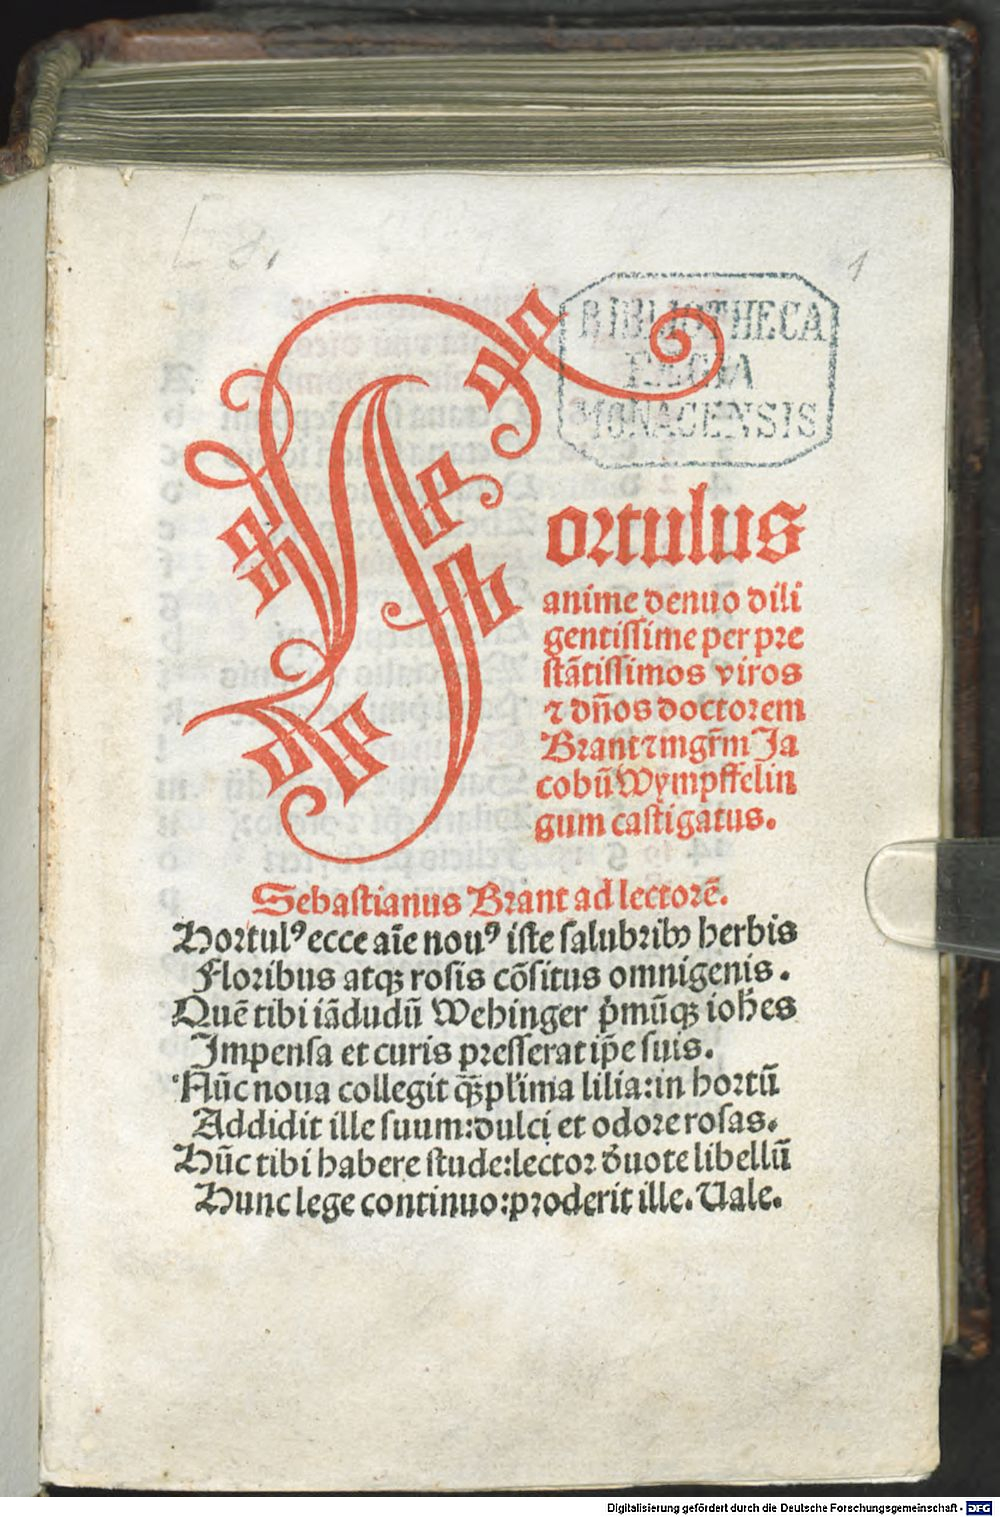 Es.
1
BIBLIOTHECA
REGIA
MONACENSIS
Hortulus
anime denuo dili
gentissime per pre
stātissimos viros
⁊ dn̄os doctorem
Brant ⁊ mgr̄m Ja
cobū Wympffelin
gum castigatus.
Sebastianus Brant ad lectorē.
Hortulꝰ ecce aīe nouꝰ iste salubribꝫ herbis
Floribus atqꝫ rosis cōsitus omnigenis.
Quē tibi iādudū Wehinger p̄mūqꝫ ioh̄es
Impensa et curis presserat ip̄e suis.
Nūc noua collegit q̄ꝫpl'ima lilia: in hortū
Addidit ille suum: dulci et odore rosas.
Hūc tibi habere stude: lector d̕uote libellū
Hunc lege continuo: proderit ille. Uale.
Digitalisierung gefördert durch die Deutsche Forschungsgemeinschaft - DFG